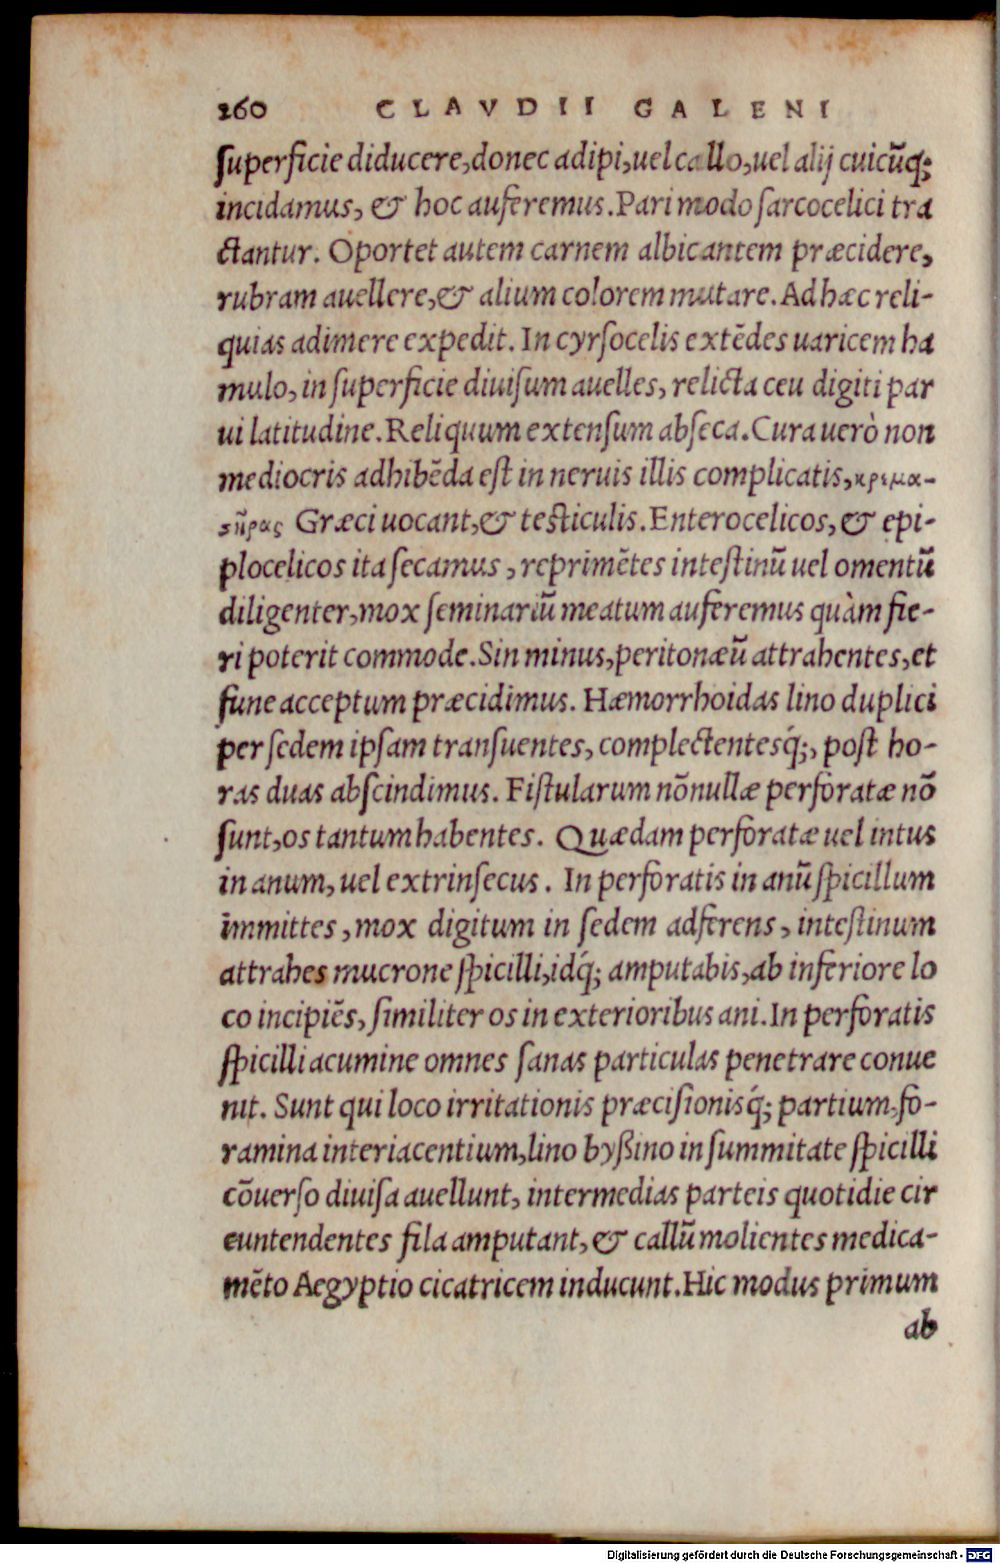 260 CLAVDII GALENI
superficie diducere, donec adipi, uel callo, uel alij cuicūq;
incidamus, & hoc auferemus. Pari modo sarcocelici tra
ctantur. Oportet autem carnem albicantem præcidere,
rubram auellere, & alium colorem mutare. Ad hæc reli-
quias adimere expedit. In cyrsocelis extēdes uaricem ha
mulo, in superficie diuisum auelles, relicta ceu digiti par
ui latitudine. Reliquum extensum abseca. Cura uerò non
mediocris adhibēda est in neruis illis complicatis, κριμα-
ςῆρας Græci uocant, & testiculis. Enterocelicos, & epi-
plocelicos ita secamus, reprimētes intestinū uel omentū
diligenter, mox seminariū meatum auferemus quàm fie-
ri poterit commode. Sin minus, peritonæū attrahentes, et
fune acceptum præcidimus. Hæmorrhoidas lino duplici
per sedem ipsam transuentes, complectentesq́;, post ho-
ras duas abscindimus. Fistularum nōnullæ perforatæ nō
sunt, os tantum habentes. Quædam perforatæ uel intus
in anum, uel extrinsecus. In perforatis in anū spicillum
immittes, mox digitum in sedem adferens, intestinum
attrahes mucrone spicilli, idq́; amputabis, ab inferiore lo
co incipiēs, similiter os in exterioribus ani. In perforatis
spicilli acumine omnes sanas particulas penetrare conue
nit. Sunt qui loco irritationis præcisionisq́; partium, fo-
ramina interiacentium, lino byßino in summitate spicilli
cōuerso diuisa auellunt, intermedias parteis quotidie cir
cuntendentes fila amputant, & callū molientes medica-
mēto Aegyptio cicatricem inducunt. Hic modus primum
ab
Digitalisierung gefördert durch die Deutsche Forschungsgemeinschaft - DFG